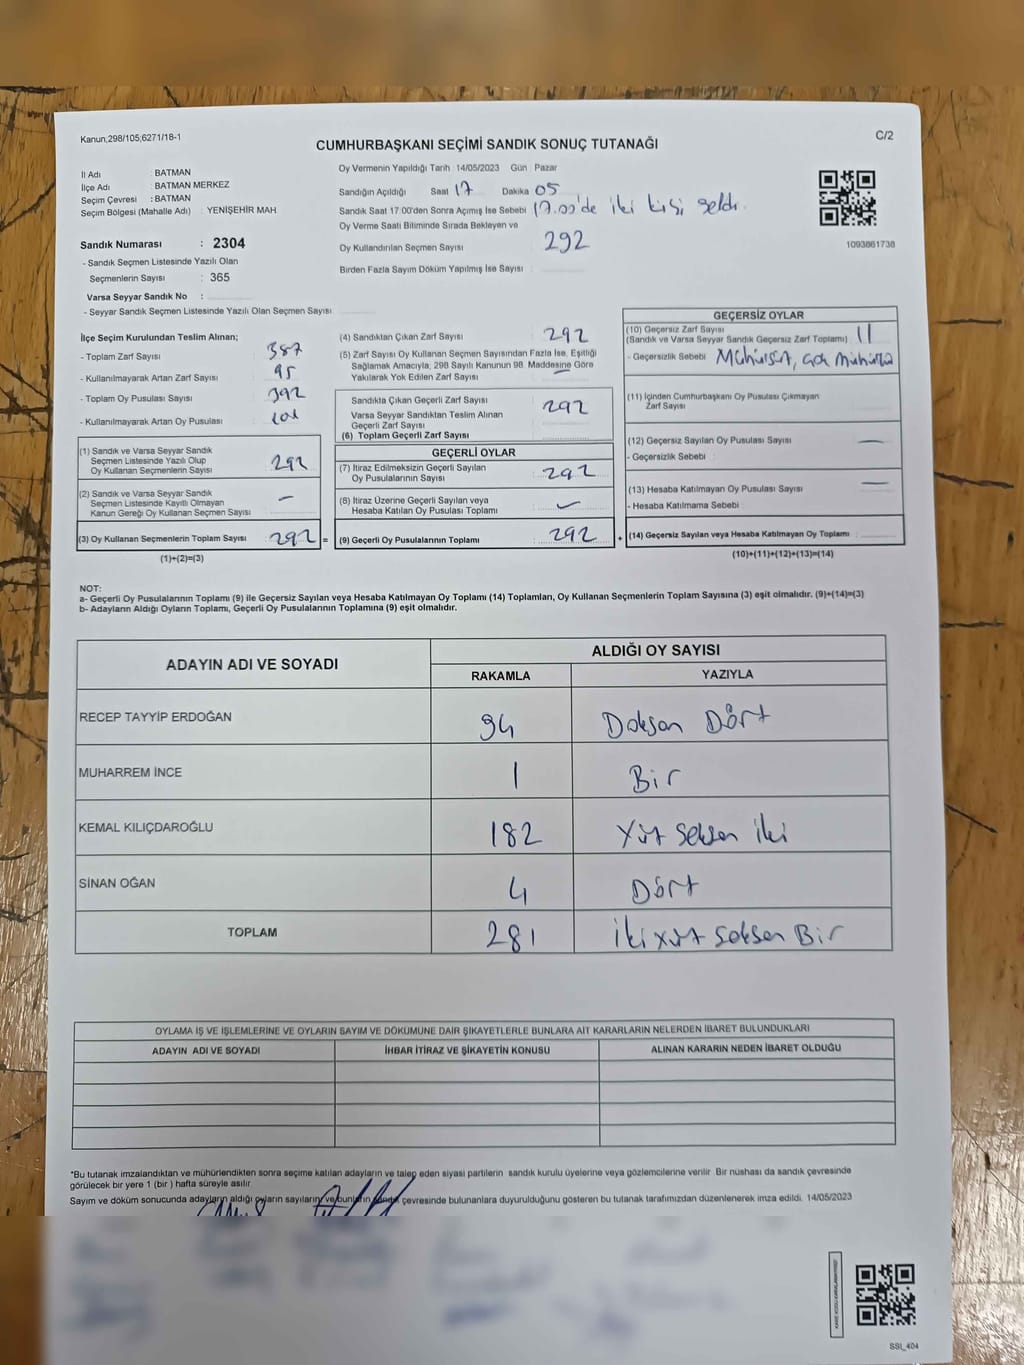 Kanun,298/105;6271/18-1
C/2
CUMHURBAŞKANI SEÇİMİ SANDIK SONUÇ TUTANAĞI
İl Adı : BATMAN
İlçe Adı : BATMAN MERKEZ
Seçim Çevresi : BATMAN
Seçim Bölgesi (Mahalle Adı) : YENİŞEHİR MAH
Sandık Numarası : 2304
- Sandık Seçmen Listesinde Yazılı Olan
Seçmenlerin Sayısı : 365
Varsa Seyyar Sandık No :
- Seyyar Sandık Seçmen Listesinde Yazılı Olan Seçmen Sayısı
Oy Vermenin Yapıldığı Tarih 14/05/2023 Gün : Pazar
Sandığın Açıldığı Saat 17 Dakika 05
Sandık Saat 17:00'den Sonra Açımış İse Sebebi 17.00'de iki kişi geldi.
Oy Verme Saati Bitiminde Sırada Bekleyen ve
Oy Kullandırılan Seçmen Sayısı 292
Birden Fazla Sayım Döküm Yapılmış İse Sayısı :
1093861738
İlçe Seçim Kurulundan Teslim Alınan;
- Toplam Zarf Sayısı : 387
- Kullanılmayarak Artan Zarf Sayısı : 95
- Toplam Oy Pusulası Sayısı : 392
- Kullanılmayarak Artan Oy Pusulası :
(1) Sandık ve Varsa Seyyar Sandık
Seçmen Listesinde Yazılı Olup
Oy Kullanan Seçmenlerin Sayısı : 292
(2) Sandık ve Varsa Seyyar Sandık
Seçmen Listesinde Kayıtlı Olmayan
Kanun Gereği Oy Kullanan Seçmen Sayısı : -
(3) Oy Kullanan Seçmenlerin Toplam Sayısı : 292 =
(1)+(2)=(3)
(4) Sandıktan Çıkan Zarf Sayısı : 292
(5) Zarf Sayısı Oy Kullanan Seçmen Sayısından Fazla İse, Eşitliği
Sağlamak Amacıyla; 298 Sayılı Kanunun 98. Maddesine Göre
Yakılarak Yok Edilen Zarf Sayısı : -
Sandıkta Çıkan Geçerli Zarf Sayısı : 292
Varsa Seyyar Sandıktan Teslim Alınan
Geçerli Zarf Sayısı
(6) Toplam Geçerli Zarf Sayısı
GEÇERLİ OYLAR
(7) İtiraz Edilmeksizin Geçerli Sayılan
Oy Pusulalarının Sayısı : 292
(8) İtiraz Üzerine Geçerli Sayılan veya
Hesaba Katılan Oy Pusulası Toplamı : -
(9) Geçerli Oy Pusulalarının Toplamı : 292 +
GEÇERSİZ OYLAR
(10) Geçersiz Zarf Sayısı
(Sandık ve Varsa Seyyar Sandık Geçersiz Zarf Toplamı) : 11
- Geçersizlik Sebebi : Mühürsüz, çok mühürlü
(11) İçinden Cumhurbaşkanı Oy Pusulası Çıkmayan
Zarf Sayısı
(12) Geçersiz Sayılan Oy Pusulası Sayısı : -
- Geçersizlik Sebebi :
(13) Hesaba Katılmayan Oy Pusulası Sayısı : -
- Hesaba Katılmama Sebebi :
(14) Geçersiz Sayılan veya Hesaba Katılmayan Oy Toplamı :
(10)+(11)+(12)+(13)=(14)
NOT:
a- Geçerli Oy Pusulalarının Toplamı (9) ile Geçersiz Sayılan veya Hesaba Katılmayan Oy Toplamı (14) Toplamları, Oy Kullanan Seçmenlerin Toplam Sayısına (3) eşit olmalıdır. (9)+(14)=(3)
b- Adayların Aldığı Oyların Toplamı, Geçerli Oy Pusulalarının Toplamına (9) eşit olmalıdır.
ADAYIN ADI VE SOYADI
ALDIĞI OY SAYISI
RAKAMLA YAZIYLA
RECEP TAYYİP ERDOĞAN 94 Doksan Dört
MUHARREM İNCE 1 Bir
KEMAL KILIÇDAROĞLU 182 Yüz Seksen İki
SİNAN OĞAN 4 Dört
TOPLAM 281 İki yüz Seksen Bir
OYLAMA İŞ VE İŞLEMLERİNE VE OYLARIN SAYIM VE DÖKÜMÜNE DAİR ŞİKAYETLERLE BUNLARA AİT KARARLARIN NELERDEN İBARET BULUNDUKLARI
ADAYIN ADI VE SOYADI İHBAR İTİRAZ VE ŞİKAYETİN KONUSU ALINAN KARARIN NEDEN İBARET OLDUĞU
*Bu tutanak imzalandıktan ve mühürlendikten sonra seçime katılan adayların ve talep eden siyasi partilerin sandık kurulu üyelerine veya gözlemcilerine verilir. Bir nüshası da sandık çevresinde
görülecek bir yere 1 (bir) hafta süreyle asılır.
Sayım ve döküm sonucunda adayların aldığı oyların sayılarını ve bunların sandık çevresinde bulunanlara duyurulduğunu gösteren bu tutanak tarafımızdan düzenlenerek imza edildi. 14/05/2023
SSI_404